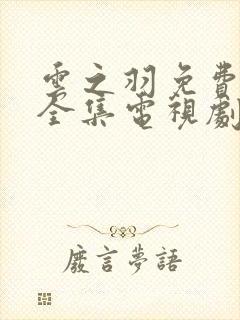 雲之羽免費
全集電視劇
廢言夢語